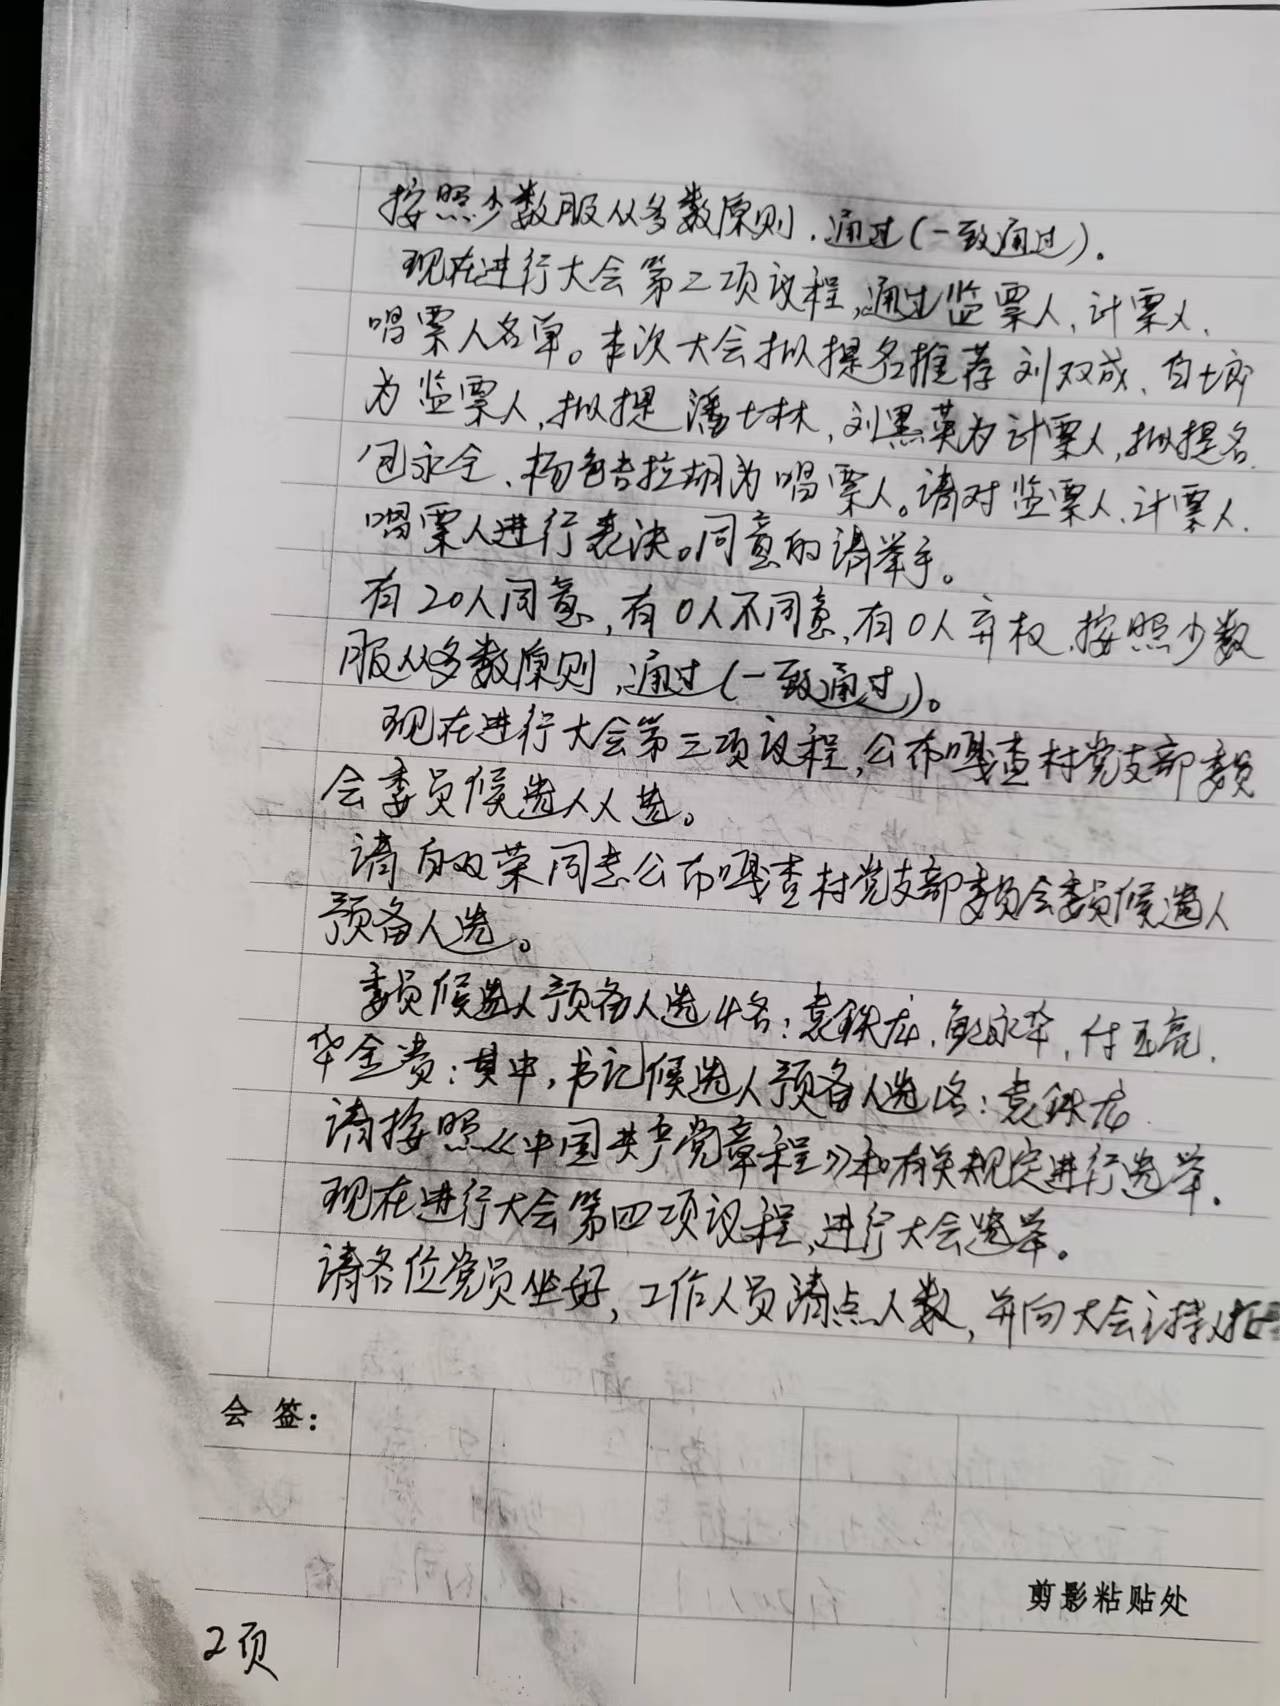 按照少数服从多数原则，通过(一致通过)。
现在进行大会第二项议程，通过监票人、计票人、
唱票人名单。本次大会拟提名推荐刘双成、白
为监票人，拟提潘七林，刘黑英为计票人，拟提名
包永全、杨色吉拉胡为唱票人。请对监票人、计票人、
唱票人进行表决。同意的请举手。
有20人同意，有0人不同意，有0人弃权，按照少数
服从多数原则，通过(一致通过)。
现在进行大会第三项议程，公布嘎查村党支部委员
会委员候选人人选。
请白双荣同志公布嘎查村党支部委员会委员候选人
预备人选。
委员候选人预备人选4名：袁铁龙，鲍永华，付玉亮，
华金贵：其中，书记候选人预备人选1名：袁铁龙
请按照《中国共产党章程》和有关规定进行选举。
现在进行大会第四项议程，进行大会选举。
请各位党员坐好，工作人员清点人数，并向大会主持人报
会 签：
剪影粘贴处
2页